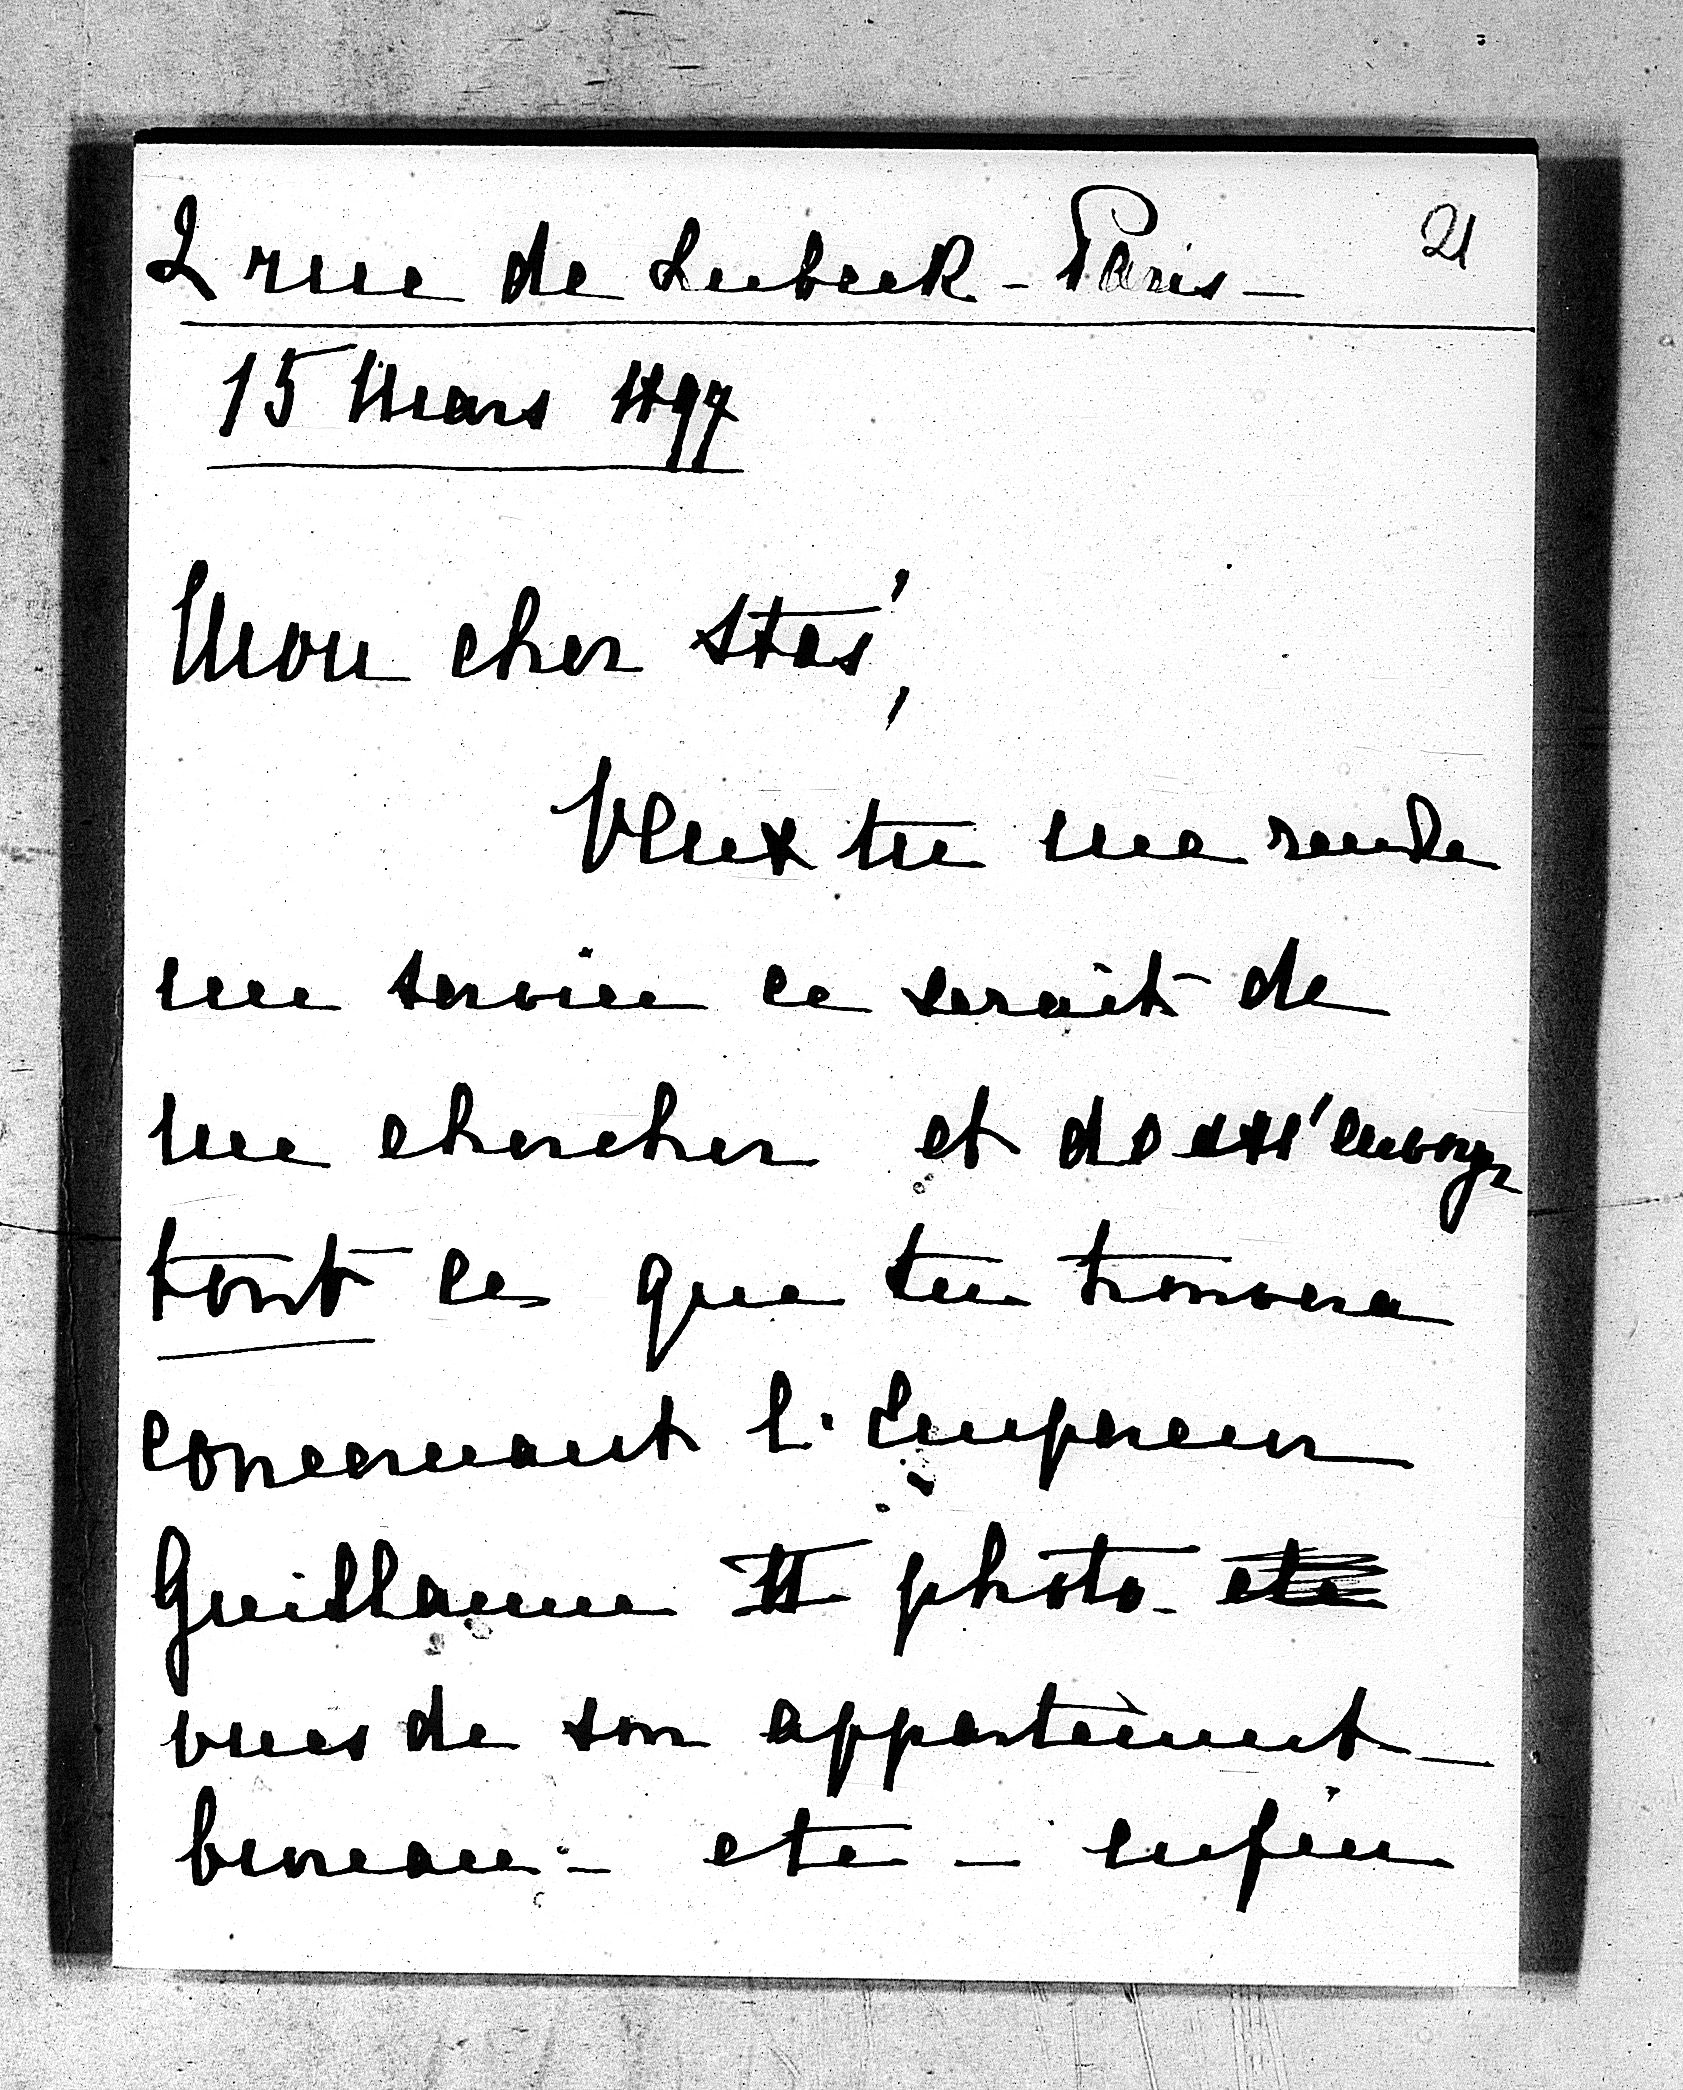 2 rue de Lubeck - Paris -
21
15 Mars 1897
Mon cher Stas',
Veux tu me rendre
un service ce serait de
me chercher et de m'envoyer
tout ce que tu trouvera
concernant l'Empereur
Guillaume II photo - etc
vues de son appartement -
bureau - etc - enfin